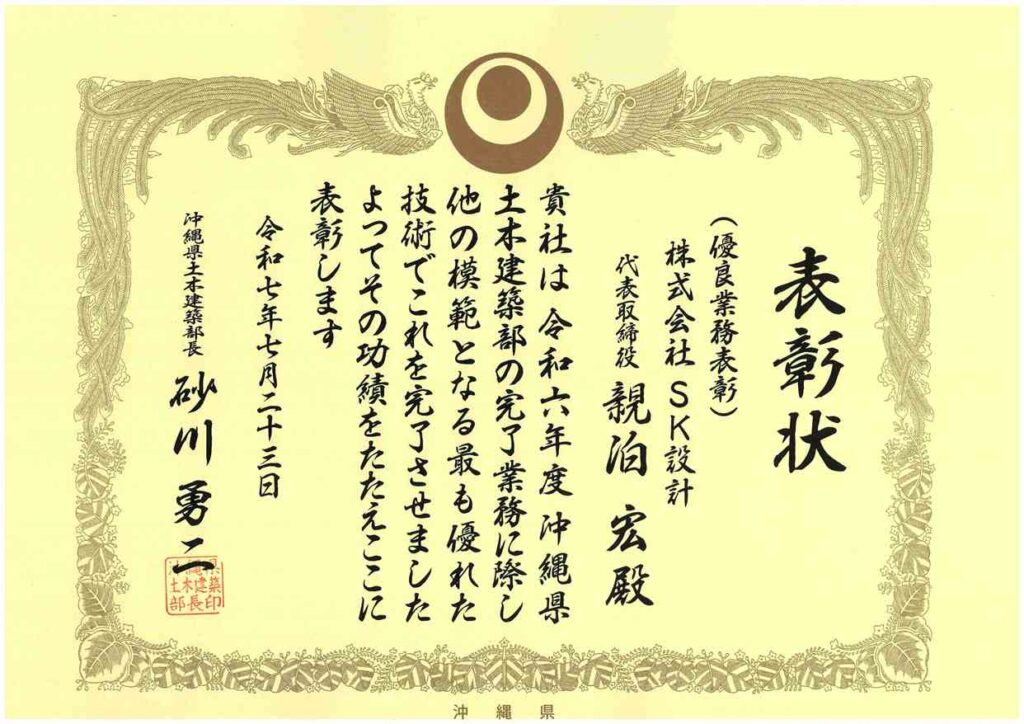 表彰状
(優良業務表彰)
株式会社SK設計
代表取締役 親泊 宏 殿
貴社は令和六年度沖縄県
土木建築部の完了業務に際し
他の模範となる最も優れた
技術でこれを完了させました
よってその功績をたたえここに
表彰します
令和七年七月二十三日
沖縄県土木建築部長 砂川 勇二
沖縄県
土木建築
部長印
沖縄県